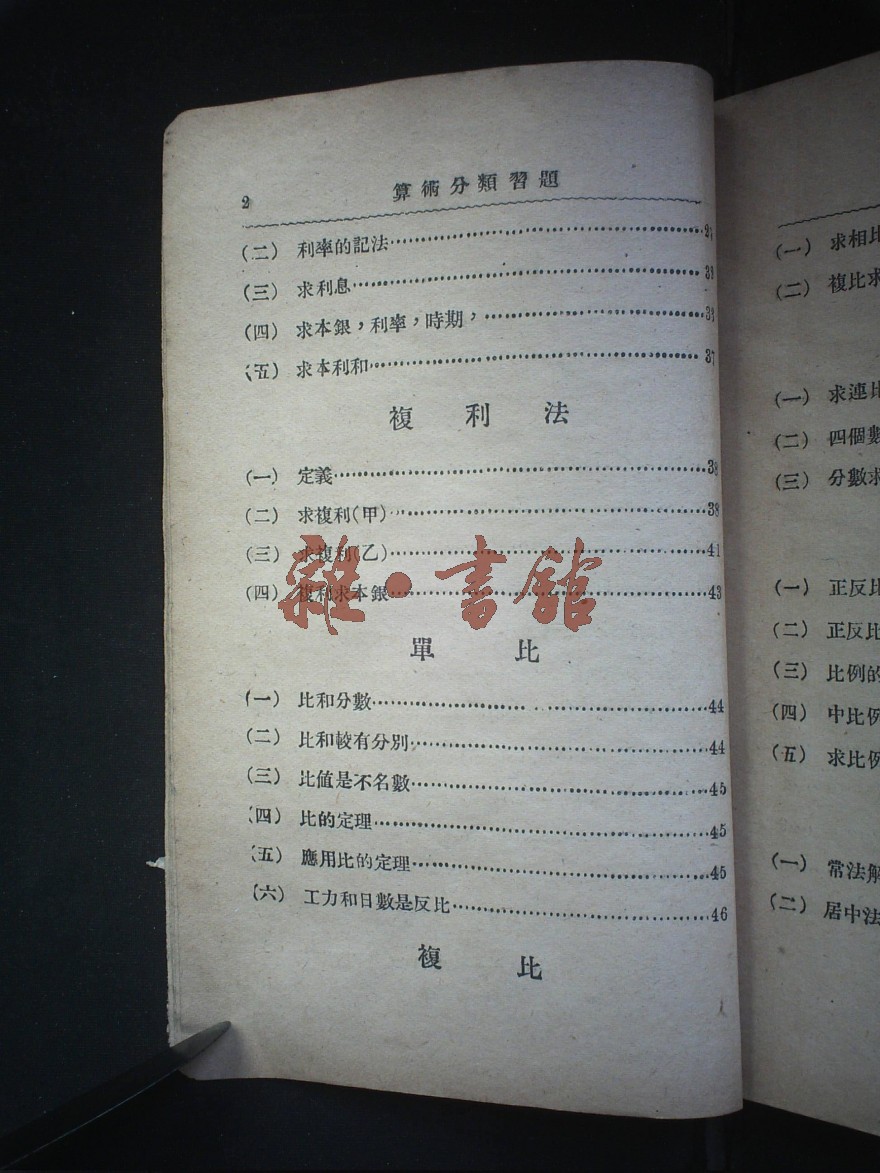 2 算術分類習題
(二) 利率的記法
(三) 求利息
(四) 求本銀，利率，時期，
(五) 求本利和 37
複利法
(一) 定義 38
(二) 求複利(甲) 38
(三) 求複利(乙) 41
(四) 複利求本銀 43
單比
(一) 比和分數 44
(二) 比和較有分別 44
(三) 比值是不名數 45
(四) 比的定理 45
(五) 應用比的定理 45
(六) 工力和日數是反比 46
複比
雜·書館
(一) 求相比
(二) 複比求
(一) 求連比
(二) 四個數
(三) 分數求
(一) 正反比
(二) 正反比
(三) 比例的
(四) 中比例
(五) 求比例
(一) 常法解
(二) 居中法